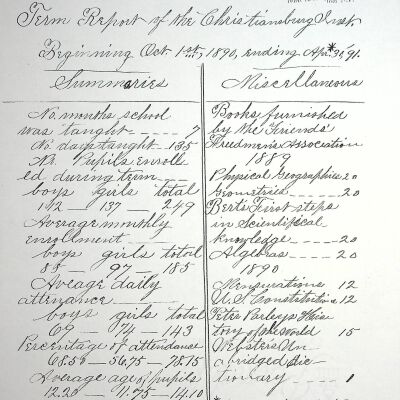 Term Report of the Christiansburg Inst.
Beginning Oct 1st, 1890, ending Apr 3, 91.
Summaries
No. months school
was taught - - - - 7
No days taught - 135
No. Pupils enroll
ed during term - -
boys girls total
112 - 137 - 249
Average monthly
enrollment - - - -
boys girls total
88 - 97 - 185
Average daily
attenance - - - -
boys girls total
69 - 74 - 143
Percentage of attendance
68.50 - 56.75 - 78.75
Average age of pupils
12.20 - 11.75 - 14.10
Miscellaneous
Books furnished
by the Friends'
Freedmen's Association
1889
Physical Geographies 20
Geometries - - - 20
Berts First steps
in Scientifical
knowledge - - - - 20
Algebras - - - - 20
1890
Mensurations 12
U.S. Constitutions 12
Peter Parleys His
tory of the world 15
Websters Un
abridged dic
tionary - - - 1